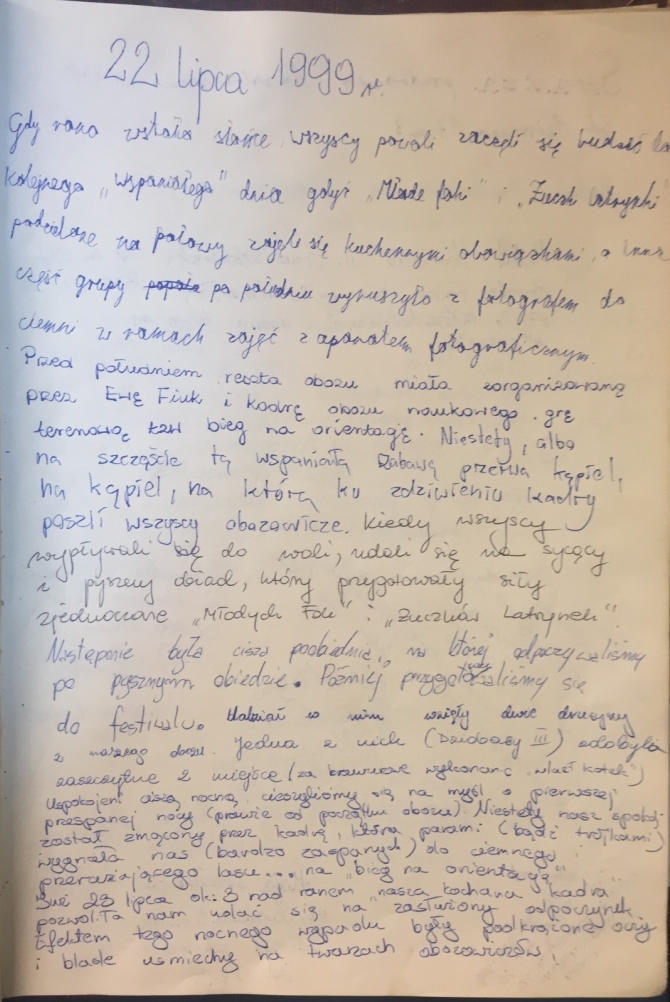 22 lipca 1999 r.
Gdy rano wstało słońce wszyscy powoli zaczęli się budzić do
kolejnego „wspaniałego” dnia gdyż „Młode foki” i „Żuczki Latrynki”
podzielone na połowy zajęli się kuchennymi obowiązkami, a inna
część grupy po południu wyruszyło z fotografem do
ciemni w ramach zajęć z aparatem fotograficznym.
Przed południem reszta obozu miała zorganizowaną
przez Ewę Fiuk i kadrę obozu naukowego grę
terenową tzw bieg na orientację. Niestety, albo
na szczęście tą wspaniałą zabawą przerwa kąpiel,
na kąpiel, na którą ku zdziwieniu kadry
poszli wszyscy obozowicze. Kiedy wszyscy
wypływali się do woli, udali się na sycący
i pyszny obiad, który przygotowały siły
zjednoczone „Młodych Fok” i „Żuczków Latrynek”.
Następnie była cisza poobiednia, na której odpoczywaliśmy
po pysznym obiedzie. Później przygotowywaliśmy się
do festiwalu. Udział w nim wzięły dwie drużyny
z naszego obozu. Jedna z nich (Dziobasy III) zdobyła
zaszczytne 2 miejsce (za brawurowe wykonanie „wlazł kotek”)
Uspokojeni ciszą nocną, cieszyliśmy się na myśl o pierwszej
przespanej nocy (prawie od początku obozu). Niestety nasz spokój
został zmącony przez kadrę, która parami (bądź trójkami)
wygnała nas (bardzo zaspanych) do ciemnego i
przerażającego lasu... na „bieg na orientację”
Już 23 lipca ok. 3 nad ranem „nasza kochana” kadra
pozwoliła nam udać się na zasłużony odpoczynek
Efektem tego nocnego wypadu były podkrążone oczy
i blade uśmiechy na twarzach obozowiczów!